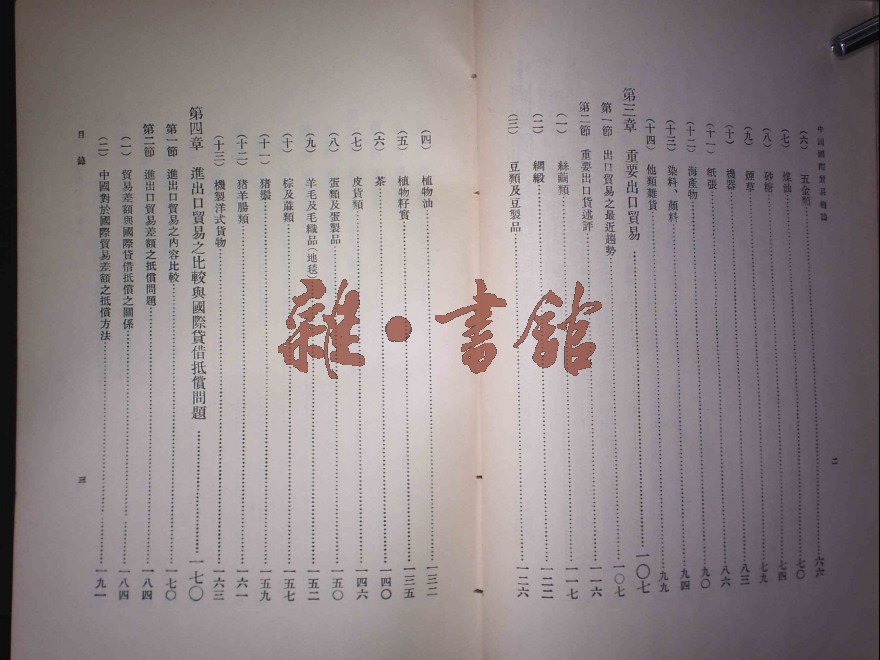 中國國際貿易概論
（六）五金類……六六
（七）煤油……七〇
（八）砂糖……七四
（九）煙草……七九
（十）機器……八三
（十一）紙張……八六
（十二）海產物……九〇
（十三）染料、顏料……九四
（十四）他類雜貨……九九
第三章 重要出口貿易……一〇七
第一節 出口貿易之最近趨勢……一〇七
第二節 重要出口貨述評……一一六
（一）絲繭類……一一七
（二）綢緞……一二二
（三）豆類及豆製品……一二六
二
（四）植物油……一三二
（五）植物籽實……一三五
（六）茶……一四〇
（七）皮貨類……一四六
（八）蛋類及蛋製品……一五〇
（九）羊毛及毛織品（地毯）……一五二
（十）棕及蔴類……一五七
（十一）豬鬃……一五九
（十二）豬羊腸類……一六一
（十三）機製洋式貨物……一六三
第四章 進出口貿易之比較與國際貸借抵償問題……一七〇
第一節 進出口貿易之內容比較……一七〇
第二節 進出口貿易差額之抵償問題……一八四
（一）貿易差額與國際貸借抵償之關係……一八四
（二）中國對於國際貿易差額之抵償方法……一九一
目錄
三
雜·書館